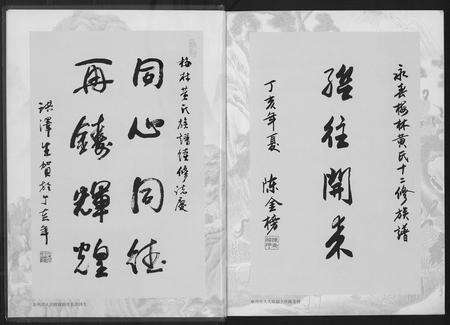 永春梅林黄氏十二修族谱
继往開来
丁亥年夏 陈金榜
梅林黄氏族譜续修誌慶
同心同德
再鑄輝煌
洪澤生賀於丁亥年